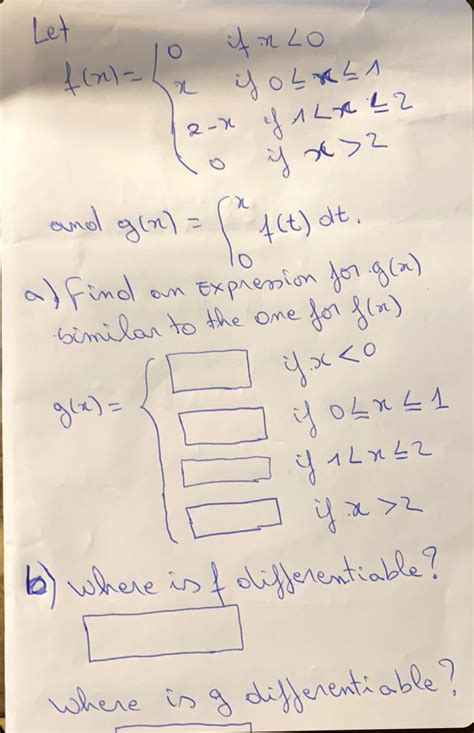 Let
f(x) = { 0 if x < 0
x if 0 ≤ x ≤ 1
2-x if 1 < x ≤ 2
0 if x > 2
and g(x) = ∫₀ˣ f(t) dt.
a) Find an expression for g(x)
similar to the one for f(x)
g(x) = { if x < 0
if 0 ≤ x ≤ 1
if 1 < x ≤ 2
if x > 2
b) Where is f differentiable?
where is g differentiable?